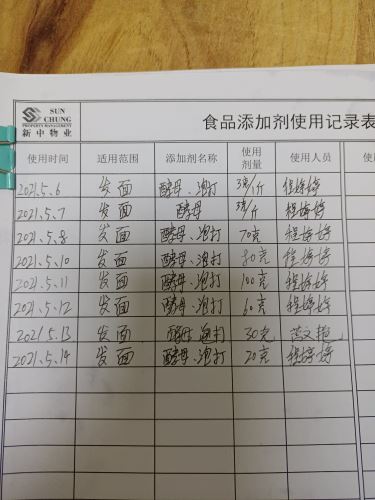 SUN CHUNG
PROPERTY MANAGEMENT
新中物业
食品添加剂使用记录表
使用时间 适用范围 添加剂名称 使用剂量 使用人员 使
2021.5.6 发面 酵母、泡打 3克/斤 程婷婷
2021.5.7 发面 酵母 3克/斤 程婷婷
2021.5.8 发面 酵母、泡打 70克 程婷婷
2021.5.10 发面 酵母、泡打 80克 程婷婷
2021.5.11 发面 酵母、泡打 100克 程婷婷
2021.5.12 发面 酵母、泡打 60克 程婷婷
2021 5.13 发面 酵母 泡打 30克
2021.5.14 发面 酵母、泡打 20克 程婷婷